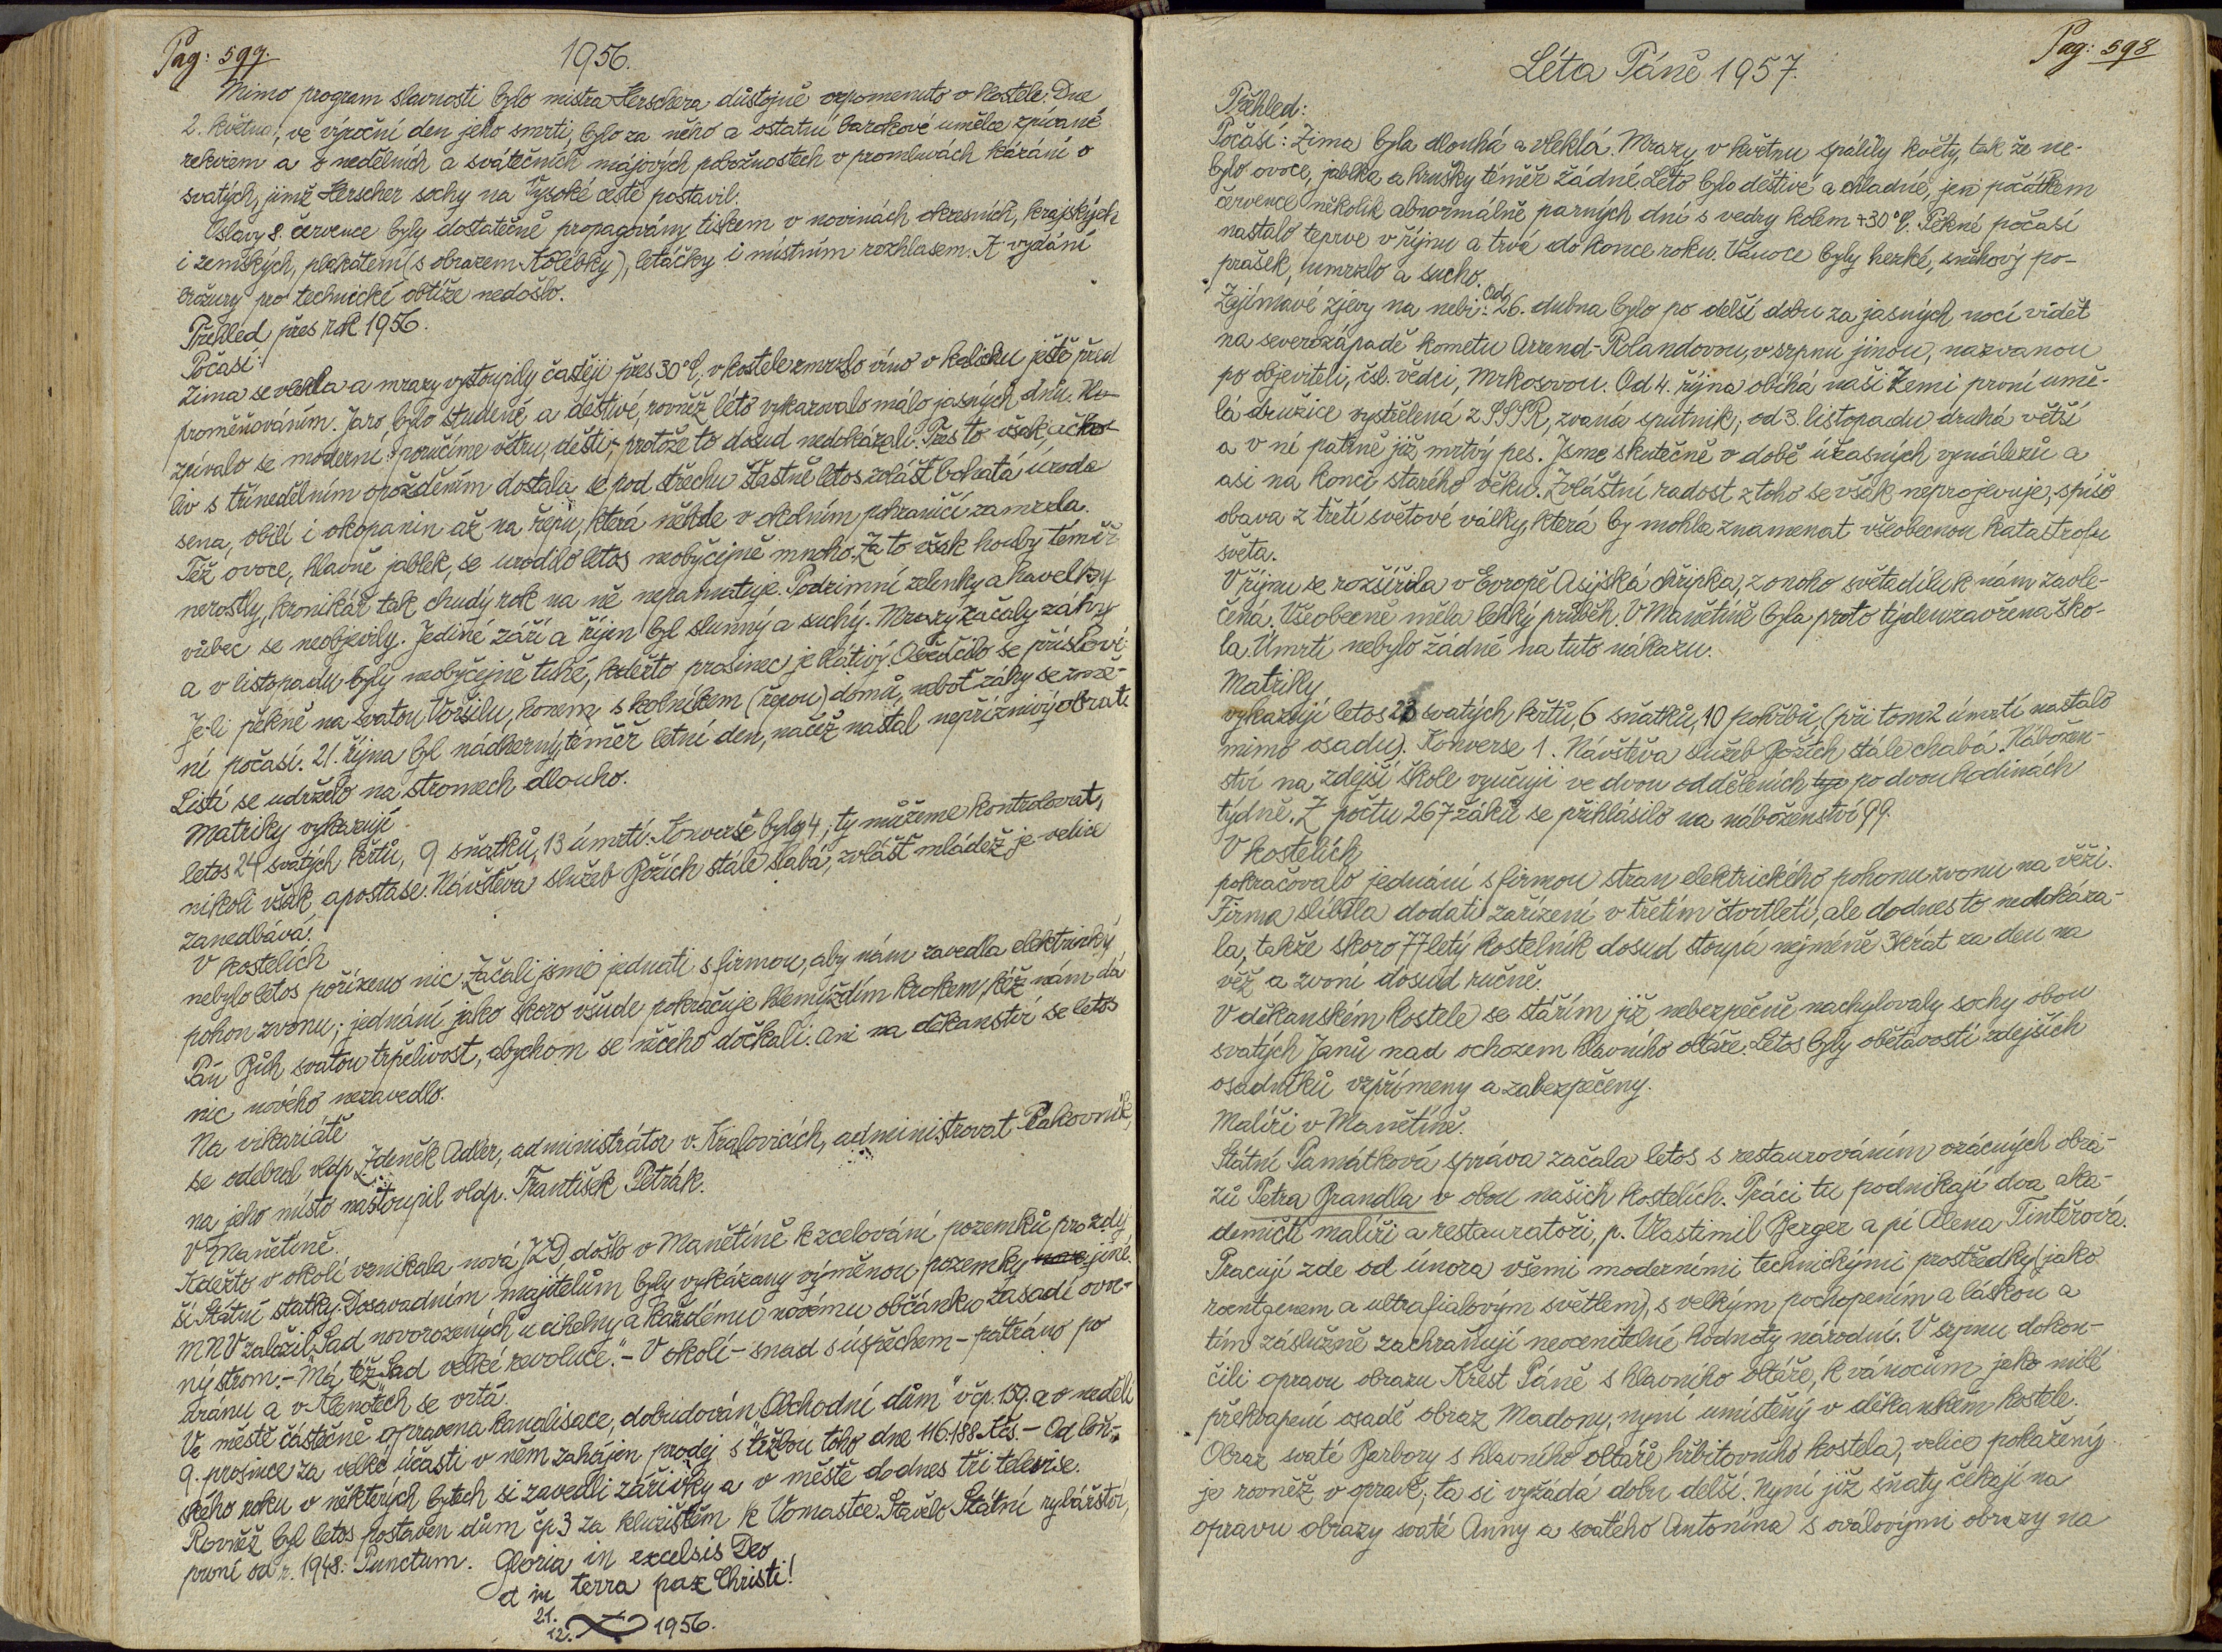 Pag: 597.
1956.
Mimo program slavnosti bylo mistra Herschera důstojně vzpomenuto v kostele: Dne
2. května, ve výroční den jeho smrti, bylo za něho a ostatní barokové umělce zpívané
rekviem a v nedělních a svátečních májových pobožnostech v promluvách kázání o
svatých, jimž Herscher sochy na Vysoké cestě postavil.
Oslavy 8. července byly dostatečně propagovány tiskem v novinách okresních, krajských
i zemských, plakátem (s obrazem Kolébky), letáčky i místním rozhlasem. K vydání
brožury pro technické obtíže nedošlo.
Přehled přes rok 1956.
Počasí:
Zima se vlekla a mrazy vystoupily častěji přes 30°C, v kostele zmrzlo víno v kalichu ještě před
proměňováním. Jaro bylo studené a deštivé, rovněž léto vykazovalo málo jasných dnů. Ne-
zpívalo se moderní: "poručíme větru, dešti", protože to dosud nedokázali. Přes to však, ačko-
liv s třínedělním opožděním dostala se pod střechu šťastně letos zvlášť bohatá úroda
sena, obilí i okopanin až na řepu, která někde v okolním pohraničí zamrzla.
Též ovoce, hlavně jablek, se urodilo letos neobyčejně mnoho. Za to však houby téměř
nerostly, kronikář tak chudý rok na ně nepamatuje. Podzimní zelenky a havelky
vůbec se neobjevily. Jediné září a říjen byl slunný a suchý. Mrazy začaly záhy
a v listopadu byly neobyčejně tuhé, kdežto prosinec je blátivý. Osvědčilo se přísloví:
Je-li pěkně na svatou Voršilu, honem s kolníkem (řepou) domů, neboť záhy se změ-
ní počasí. 21. října byl nádherný, téměř letní den, načež nastal nepříznivý obrat.
Listí se udrželo na stromech dlouho.
Matriky vykazují
letos 24 svatých křtů, 9 sňatků, 13 úmrtí. Konverse byly 4; ty můžeme kontrolovat,
nikoli však apostase. Návštěva služeb Božích stále slabá, zvlášť mládež je velice
zanedbává.
V kostelích
nebylo letos pořízeno nic. Začali jsme jednati s firmou, aby nám zavedla elektrický
pohon zvonu; jednání jako skoro všude pokračuje hlemýždím krokem, kéž nám dá
Pán Bůh svatou trpělivost, abychom se něčeho dočkali. Ani na děkanství se letos
nic nového nezavedlo.
Na vikariátě
se odebral vldp. Zdeněk Adler, administrátor v Kralovicích, administrovat Rakovník,
na jeho místo nastoupil vldp. František Petrák.
V Manětíně.
Kdežto v okolí vznikala nová JZD, došlo v Manětíně k scelování pozemků pro zdej-
ší Státní statky. Dosavadním majitelům byly vykázány výměnou pozemky jiné.
MNV založil "Sad novorozených" u cihelny a každému novému občánku zasadí ovoc-
ný strom. - Má též "Sad velké revoluce." - V okolí - snad s úspěchem - pátráno po
uranu a v Klenotech se vrtá.
Ve městě částečně opravena kanalisace, dobudován "Obchodní dům" v čp. 159. a v neděli
9. prosince za velké účasti v něm zahájen prodej s tržbou toho dne 116.188 Kčs. - Od loň-
ského roku v některých bytech si zavedli zářivky a v městě dodnes tři televise.
Rovněž byl letos postaven dům čp. 3 za kluzištěm k Vomastce. Stavělo Státní rybářství,
první od r. 1948. Punctum. Gloria in excelsis Deo
et in terra pax Christi!
21.
12. 1956.
Pag: 598
Léta Páně 1957.
Přehled:
Počasí: Zima byla dlouhá a vleklá. Mrazy v květnu spálily květy, tak že ne-
bylo ovoce, jablka a hrušky téměř žádné. Léto bylo deštivé a chladné, jen počátkem
července několik abnormálně parných dní s vedry kolem +30°C. Pěkné počasí
nastalo teprve v říjnu a trvá do konce roku. Vánoce byly hezké, sněhový po-
prašek, umrzlo a sucho.
Zajímavé zjevy na nebi: Od 26. dubna bylo po delší dobu za jasných nocí vidět
na severozápadě kometu Arrend-Rolandovou, v srpnu jinou, nazvanou
po objeviteli, čsl. vědci, Mrkosovou. Od 4. října obíhá naši Zemi první umě-
lá družice vystřelená z SSSR, zvaná sputnik; od 3. listopadu druhá větší
a v ní patrně již mrtvý pes. Jsme skutečně v době úžasných vynálezů a
asi na konci starého věku. Zvláštní radost z toho se však neprojevuje, spíše
obava z třetí světové války, která by mohla znamenat všeobecnou katastrofu
světa.
V říjnu se rozšířila v Evropě Asijská chřipka, z onoho světadílu k nám zavle-
čená. Všeobecně měla lehký průběh. V Manětíně byla proto týden zavřena ško-
la. Úmrtí nebylo žádné na tuto nákazu.
Matriky
vykazují letos 23 svatých křtů, 6 sňatků, 10 pohřbů, (při tom 2 úmrtí nastalo
mimo osadu). Konverse 1. Návštěva služeb Božích stále chabá. Nábožen-
ství na zdejší škole vyučuji ve dvou odděleních po dvou hodinách
týdně. Z počtu 267 žáků se přihlásilo na náboženství 99.
V kostelích
pokračovalo jednání s firmou stran elektrického pohonu zvonu na věži.
Firma slíbila dodati zařízení v třetím čtvrtletí, ale dodnes to nedokáza-
la, takže skoro 77letý kostelník dosud stoupá nejméně 3krát za den na
věž a zvoní dosud ručně.
V děkanském kostele se stářím již nebezpečně nachylovaly sochy obou
svatých Janů nad ochozem hlavního oltáře. Letos byly obětavostí zdejších
osadníků vzpřímeny a zabezpečeny.
Malíři v Manětíně.
Státní Památková správa začala letos s restaurováním vzácných obra-
zů Petra Brandla v obou našich kostelích. Práci tu podnikají dva aka-
demičtí malíři a restaurátoři, p. Vlastimil Berger a pí Alena Tintěrová.
Pracují zde od února všemi moderními technickými prostředky (jako
roentgenem a ultrafialovým světlem), s velkým pochopením a láskou a
tím záslužně zachraňují neocenitelné hodnoty národní. V srpnu dokon-
čili opravu obrazu Křest Páně s hlavního oltáře, k vánocům jako milé
překvapení osadě obraz Madony, nyní umístěný v děkanském kostele.
Obraz svaté Barbory s hlavního oltáře hřbitovního kostela, velice pokažený
je rovněž v opravě; ta si vyžádá dobu delší. Nyní již sňaty čekají na
opravu obrazy svaté Anny a svatého Antonína s oválovými obrazy na